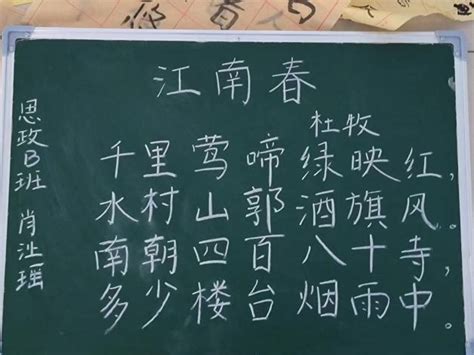 江南春
杜牧
千里莺啼绿映红，
水村山郭酒旗风。
南朝四百八十寺，
多少楼台烟雨中。
思政B班 肖